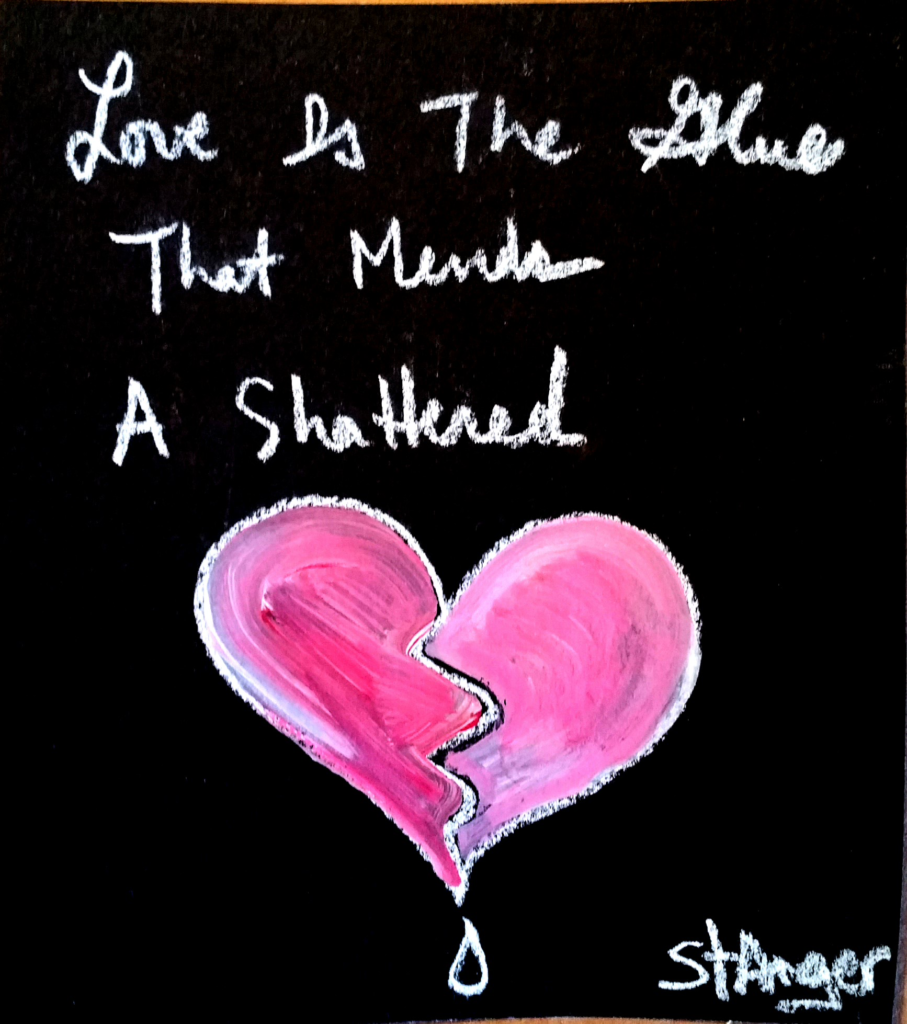 Love Is The Glue
That Mends
A Shattered
StAnger